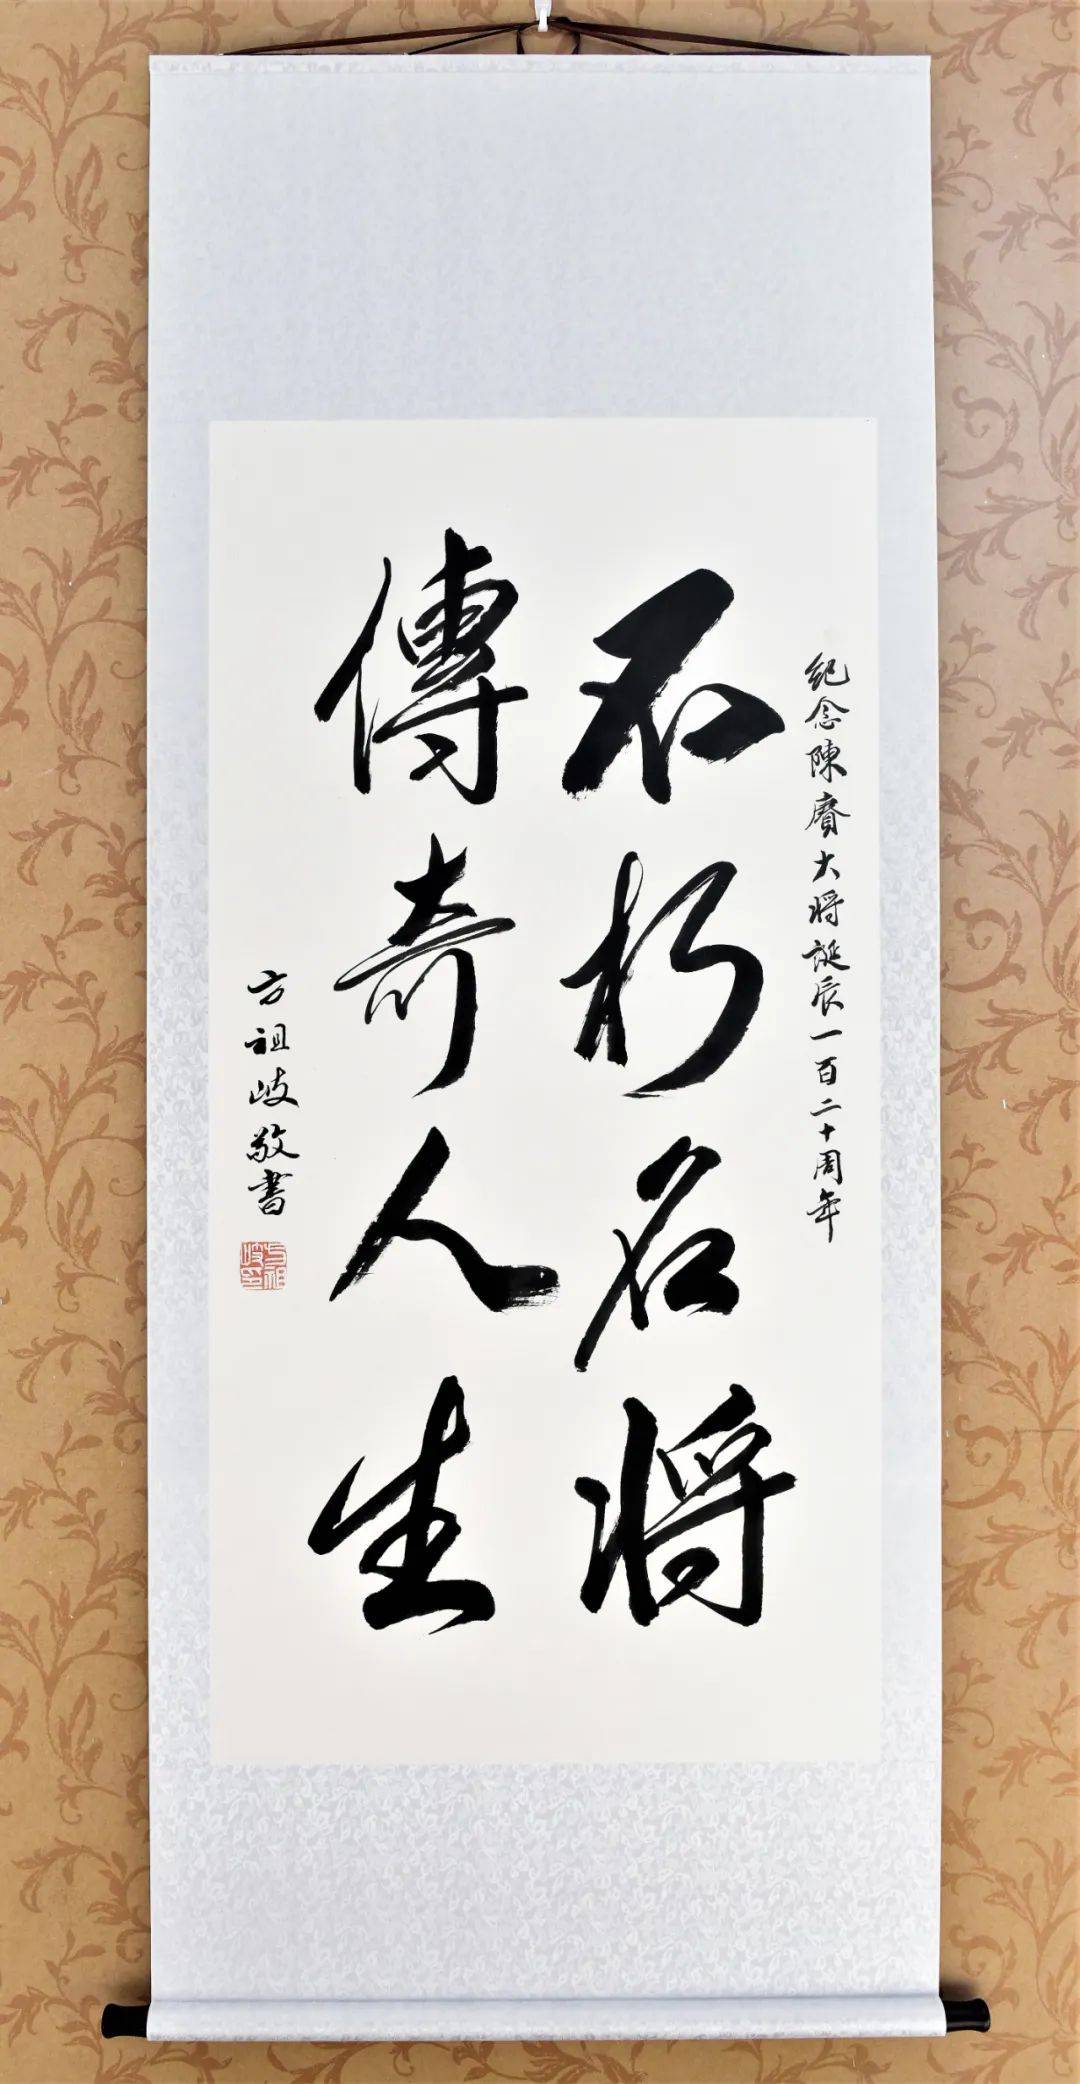 紀念陳賡大将誕辰一百二十周年
不朽名将
傳奇人生
方祖岐敬書
方祖岐印